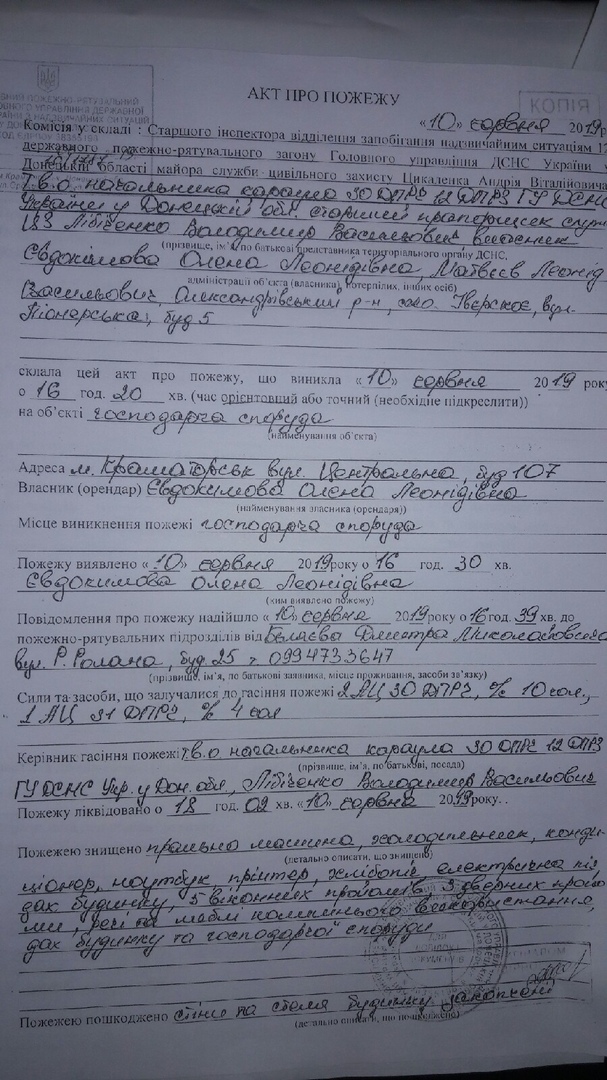 АКТ ПРО ПОЖЕЖУ
КОПІЯ
«10» сервня 2019 р
Комісія у складі : Старшого інспектора відділення запобігання надзвичайним ситуаціям 12
державного пожежно-рятувального загону Головного управління ДСНС України у
Донецькій області майора служби цивільного захисту Цикаленка Андрія Віталійовича
Т.в.о начальника караула 30 ДПРЧ 12 ДПРЗ ГУ ДСНС
України у Донецькій обл. старший прапорщик служ
ЦЗ Лібіченко Володимир Васильович
(прізвище, ім'я, по батькові представника територіального органу ДСНС,
Євдокімова Олена Леонідівна, Матвєєв Леонід
адміністрації об'єкта (власника), потерпілих, інших осіб)
Васильович, Олександрівський р-н, Іверскоє, вул.
Піонерська, буд 5
склала цей акт про пожежу, що виникла «10» сервня 2019 року
о 16 год. 20 хв. (час орієнтовний або точний (необхідне підкреслити))
на об'єкті господарча споруда
(найменування об'єкта)
Адреса м. Краматорськ вул. Центральна, буд 107
Власник (орендар) Євдокимова Олена Леонідівна
(найменування власника (орендаря))
Місце виникнення пожежі господарча споруда
Пожежу виявлено «10» сервня 2019 року о 16 год. 30 хв.
Євдокимова Олена Леонідівна
(ким виявлено пожежу)
Повідомлення про пожежу надійшло «10» сервня 2019 року о 16 год. 39 хв. до
пожежно-рятувальних підрозділів від Бєляєва Дмитра Миколайовича
вул. Р. Ролана, буд 25 т. 0994733647
(прізвище, ім'я, по батькові заявника, місце проживання, засоби зв'язку)
Сили та засоби, що залучалися до гасіння пожежі 2 АЦ 30 ДПРЧ, ч/с 10 чол.,
1 АЦ 31 ДПРЧ, ч/с 4 чол
Керівник гасіння пожежі т.в.о начальника караула 30 ДПРЧ 12 ДПРЗ
(прізвище, ім'я, по батькові, посада)
ГУ ДСНС Укр. у Дон. обл, Лібіченко Володимир Васильович
Пожежу ліквідовано о 18 год. 02 хв. «10» сервня 2019 року.
Пожежею знищено пральна машина, холодильник, конди-
(детально описати, що знищено)
ціонер, ноутбук, прінтер, хлібопіч, електрична
дах будинку, 5 віконних пройомів, 3 дверних пройо
ми, речі та меблі колишнього використання,
дах будинку та господарчої споруди
Пожежею пошкоджено стіни та стеля будинку закопчені
(детально описати, що пошкоджено)